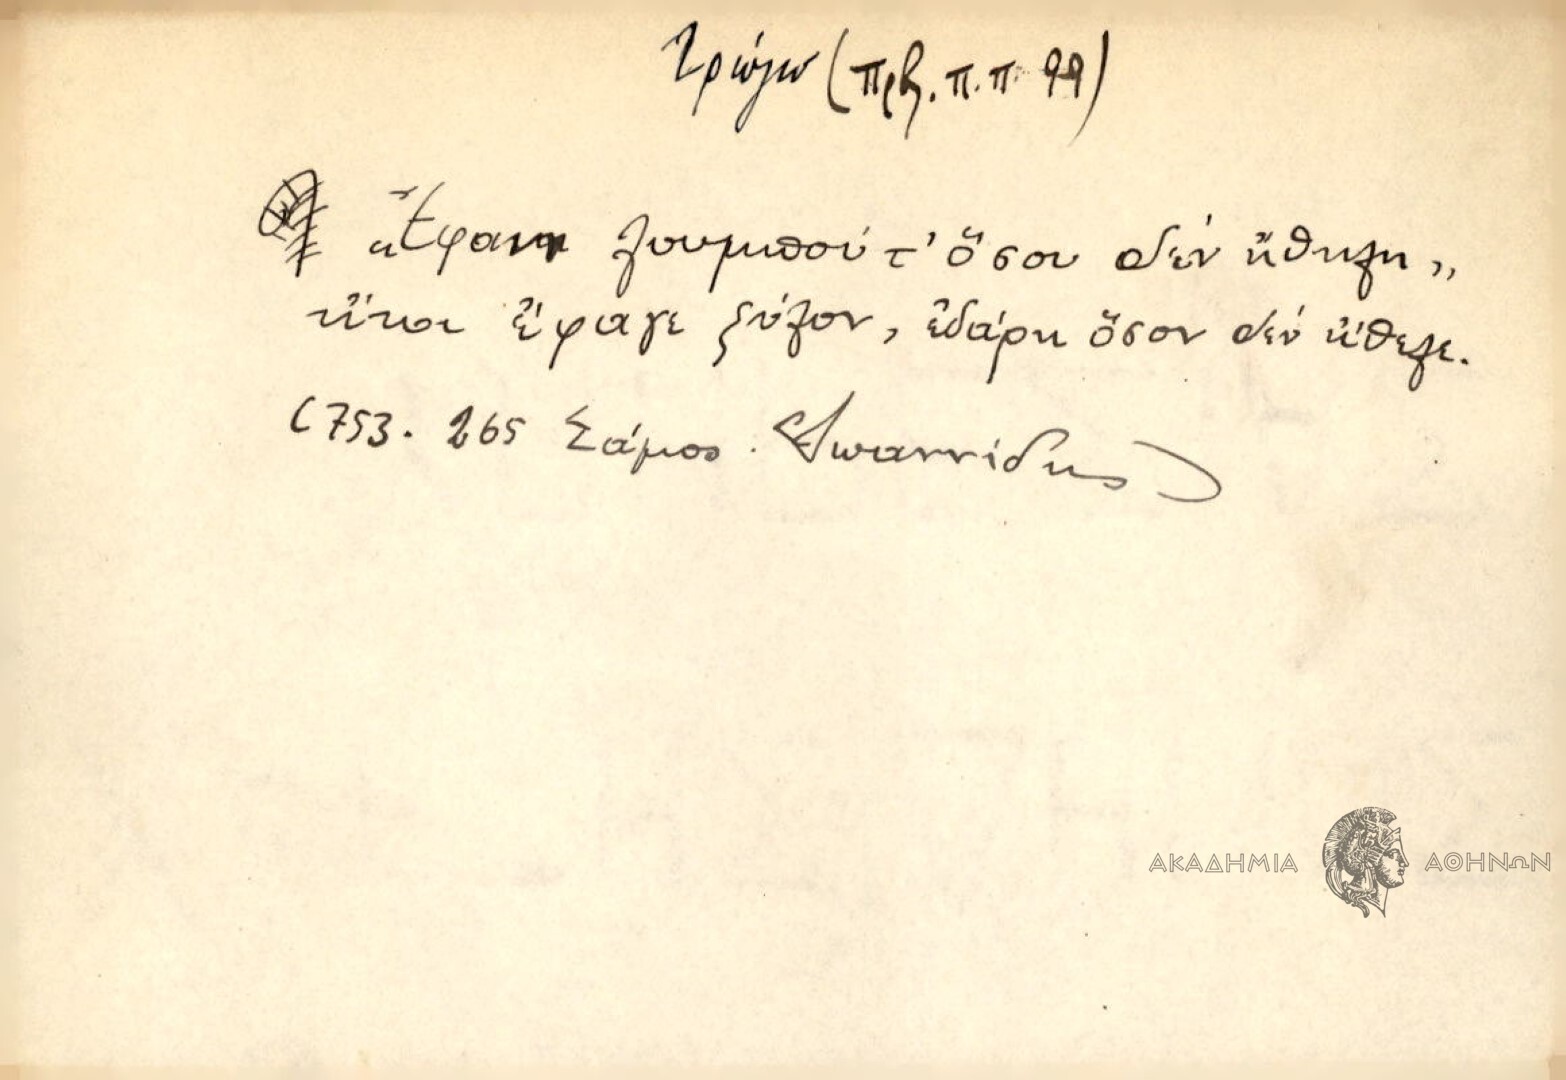 τρώγω (πρβ. π.π. 99)
„Ἔφανι λουμπού τ' ὅσου δέν ἤθιλι„
ἤτοι ἔφαγε ξύλον, ἐδάρη ὅσον δέν ἤθελε.
(753. 265 Σάμος. Ἰωαννίδης)
ΑΚΑΔΗΜΙΑ ΑΘΗΝΩΝ